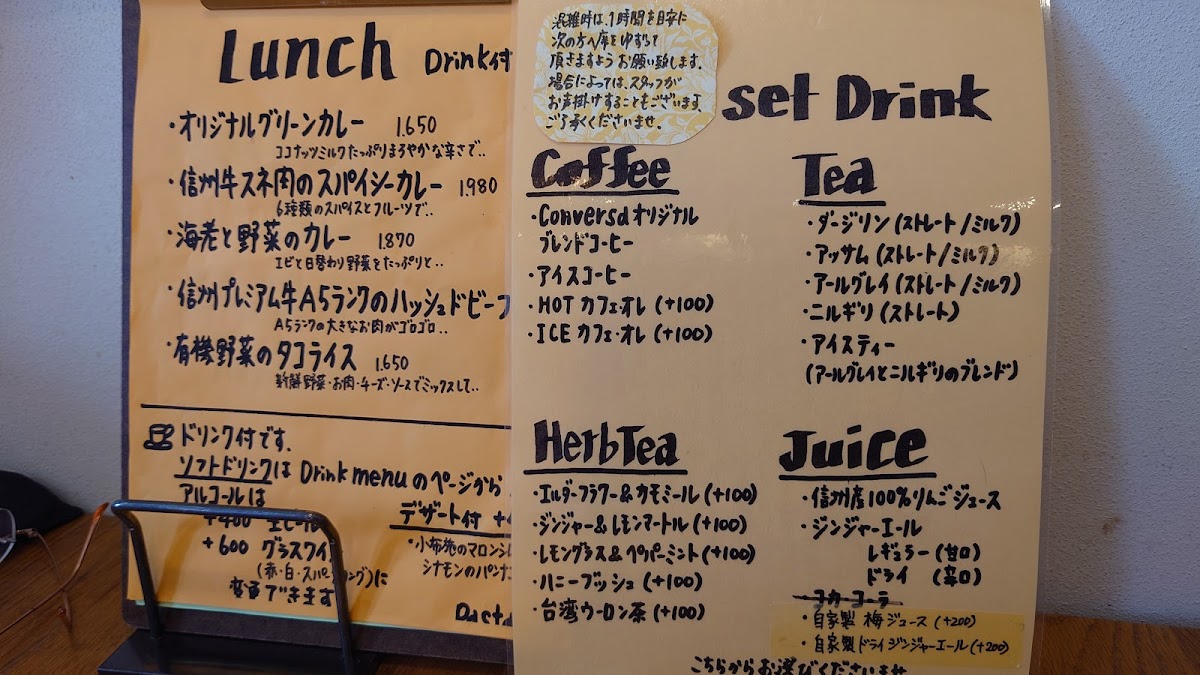 Lunch Drink付
・オリジナルグリーンカレー 1.650
ココナッツミルクたっぷりまろやかな辛さで..
・信州牛スネ肉のスパイシーカレー 1.980
6種類のスパイスとフルーツで..
・海老と野菜のカレー 1.870
エビと日替わり野菜をたっぷりと..
・信州プレミアム牛A5ランクのハッシュドビーフ
A5ランクの大きなお肉がゴロゴロ..
・有機野菜のタコライス 1.650
新鮮野菜・お肉・チーズ・ソースでミックスして..
ドリンク付です.
ソフトドリンクは Drink menuのページから
アルコールは
+400
+600 グラスワイン
(赤・白・スパークリング)に
変更できます
デザート付
・小布施のマロン
シナモンのパンナ
混雑時は、1時間を目安に
次の方へ席をゆずって
頂きますようお願い致します.
場合によっては、スタッフが
お声掛けすることもございます.
ご了承くださいませ.
set Drink
Coffee
・Conversaオリジナル
ブレンドコーヒー
・アイスコーヒー
・HOT カフェ・オレ (+100)
・ICE カフェ・オレ (+100)
Tea
・ダージリン (ストレート/ミルク)
・アッサム (ストレート/ミルク)
・アールグレイ (ストレート/ミルク)
・ニルギリ (ストレート)
・アイスティー
(アールグレイとニルギリのブレンド)
HerbTea
・エルダーフラワー&カモミール (+100)
・ジンジャー&レモンマートル (+100)
・レモングラス&ペパーミント (+100)
・ハニーブッシュ (+100)
・台湾ウーロン茶 (+100)
Juice
・信州産100%りんごジュース
・ジンジャーエール
レギュラー (甘口)
ドライ (辛口)
コカ・コーラ
・自家製 梅ジュース (+200)
・自家製ドライジンジャーエール (+200)
こちらからお選びくださいませ